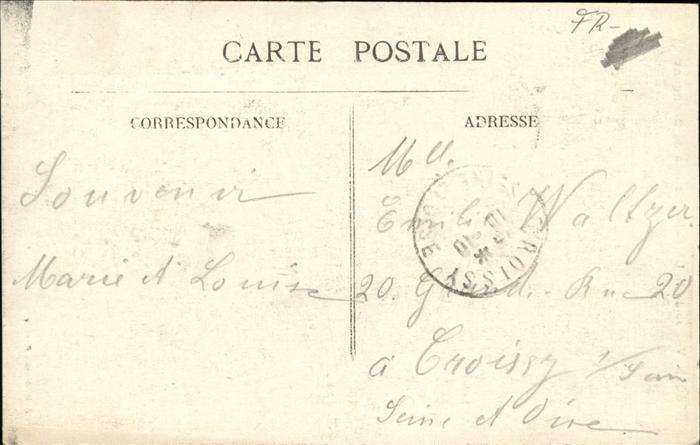 FR-
CARTE POSTALE
CORRESPONDANCE
ADRESSE
Souvenir
Marie et Louise
Mlle.
Emilie Waltzer.
20. Grande-Rue 20
a Croissy s/Seine
Seine et Oise
CROISSY